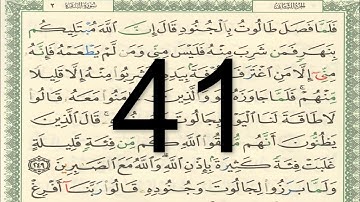 سورة البقرة ٢
فلما فصل طالوت بالجنود قال إن الله مبتليكم
بنهر فمن شرب منه فليس مني ومن لم يطعمه فإنه
مني إلا من اغترف غرفة بيده فشربوا منه إلا قليلا
منهم فلما جاوزه هو والذين ءامنوا معه قالوا
لا طاقة لنا اليوم بجالوت وجنوده قال الذين
يظنون أنهم ملقوا الله كم من فئة قليلة
غلبت فئة كثيرة بإذن الله والله مع الصبرين ٢٤٩
ولما برزوا لجالوت وجنوده قالوا ربنا أفرغ
41